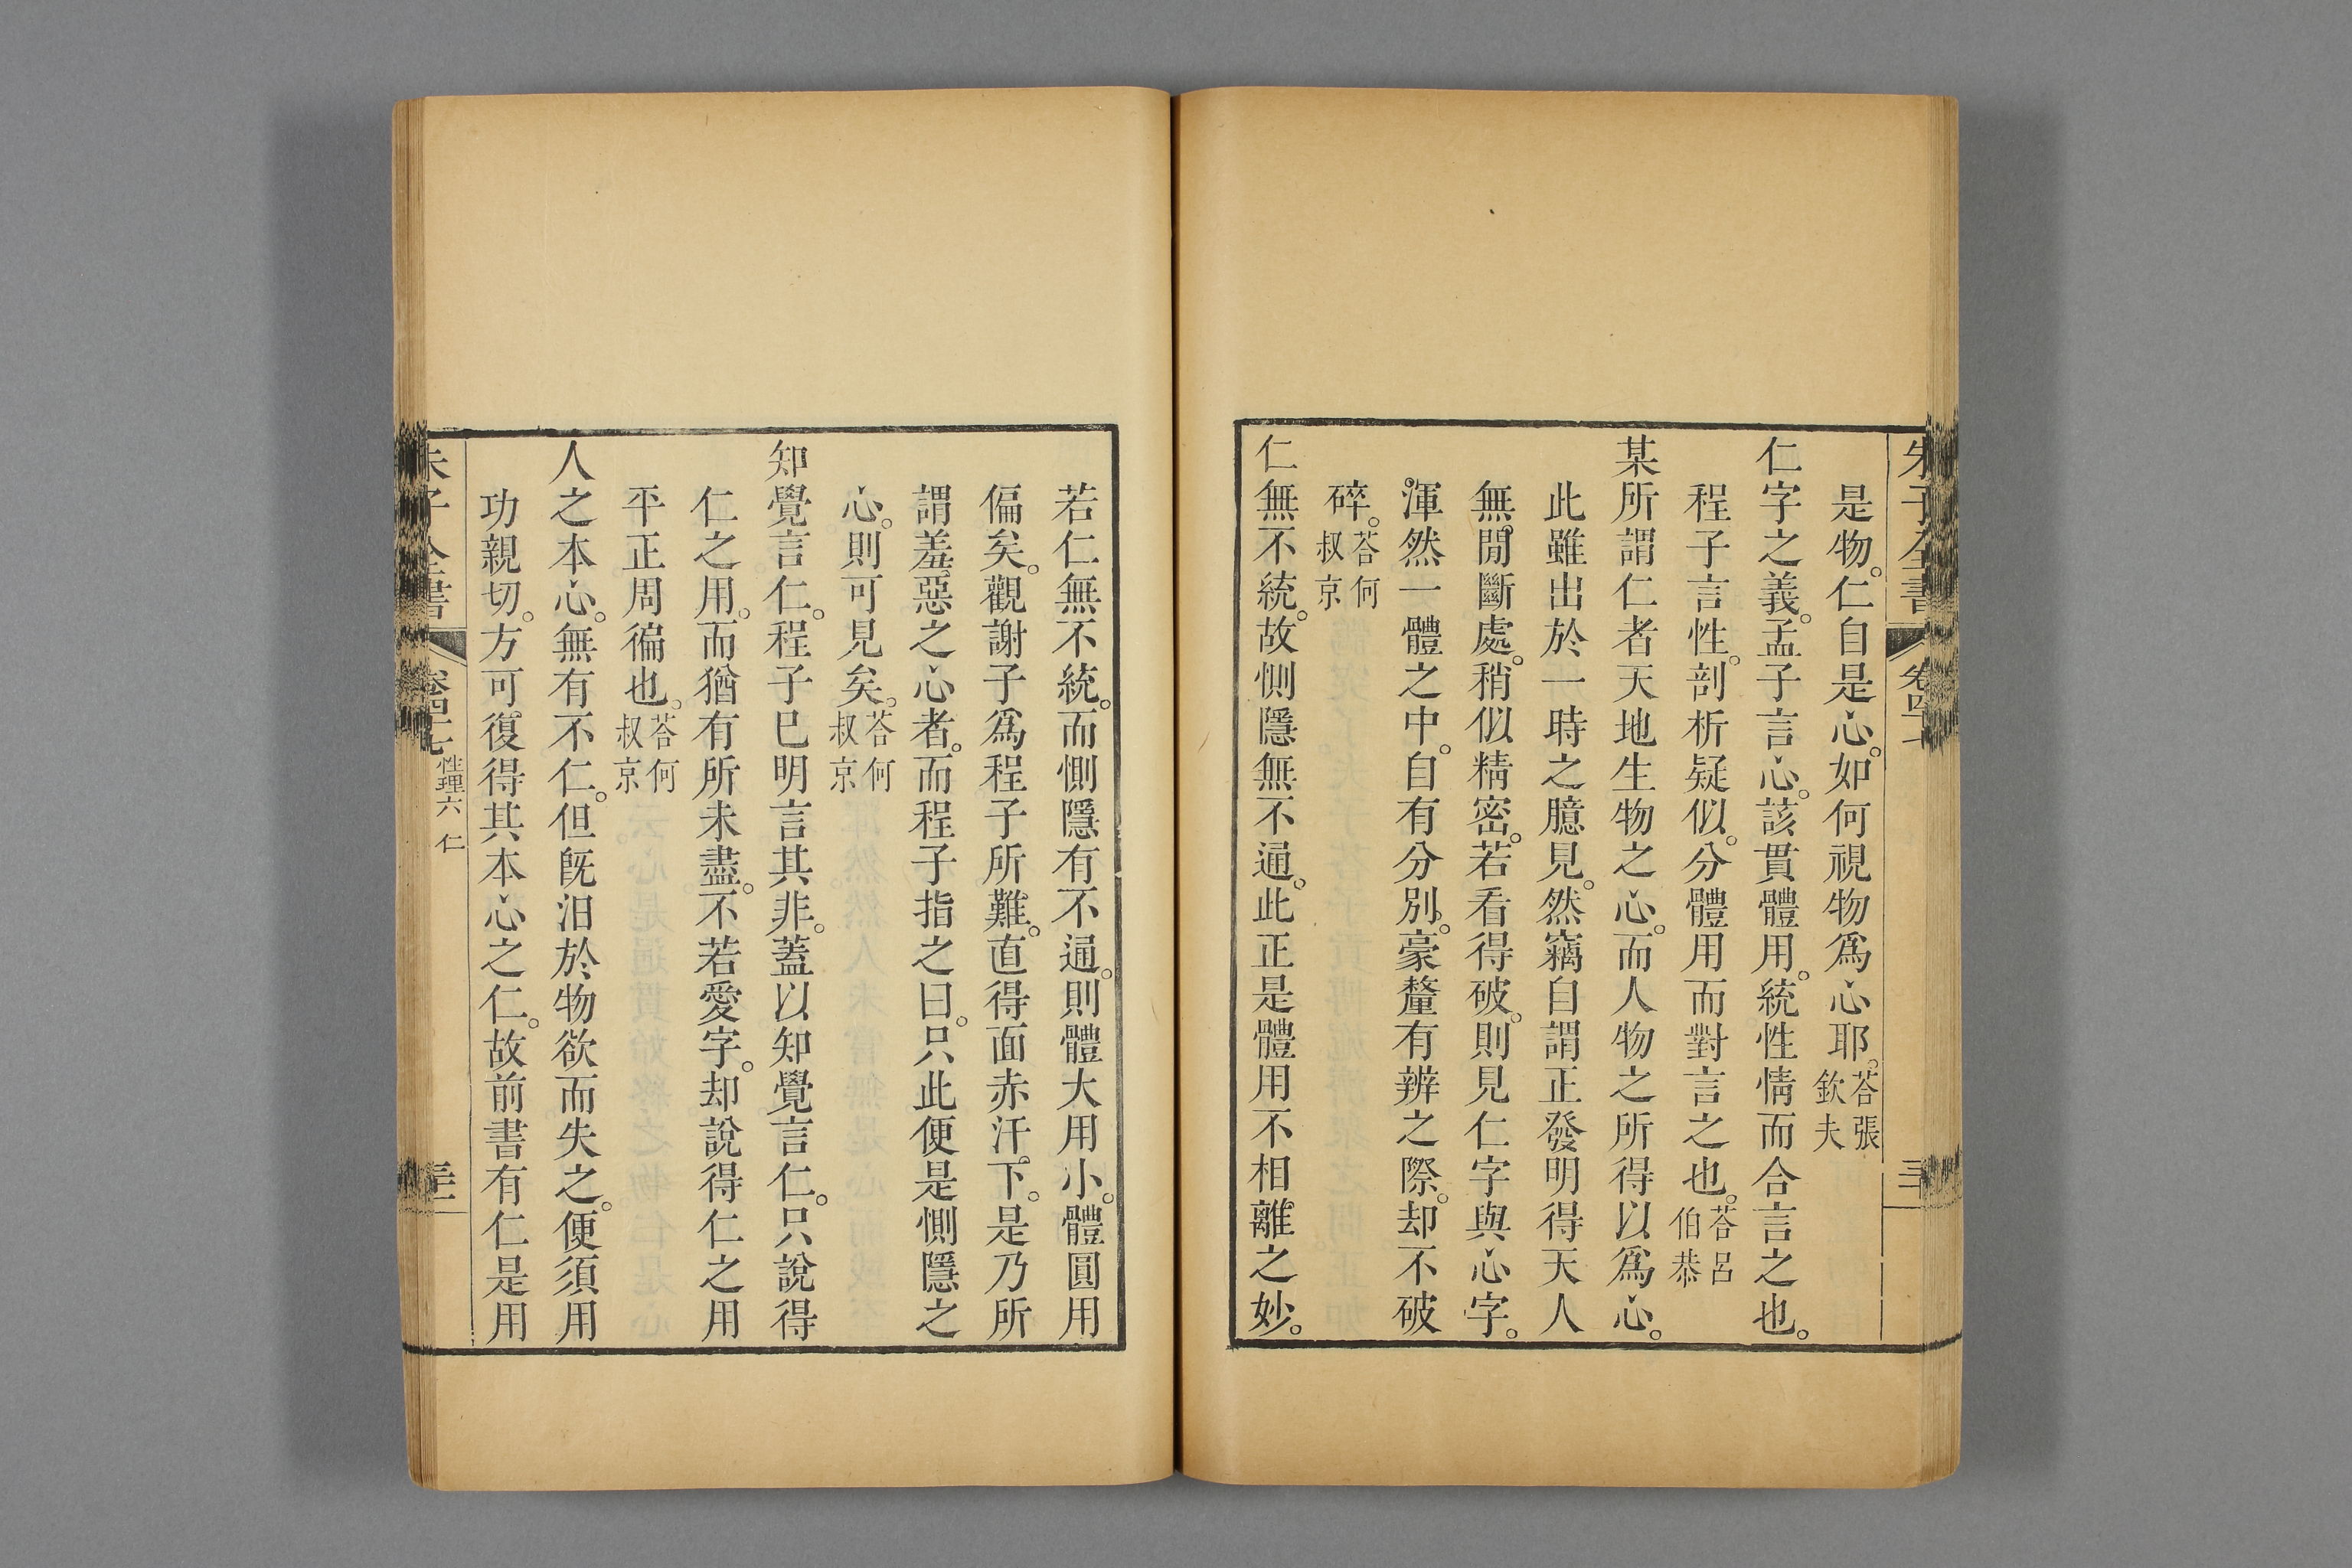 朱子全書 卷四十七 三十
是物。仁自是心。如何視物爲心耶。荅張欽夫
仁字之義。孟子言心。該貫體用。統性情而合言之也。
程子言性。剖析疑似。分體用而對言之也。荅呂伯恭
某所謂仁者天地生物之心。而人物之所得以爲心。
此雖出於一時之臆見。然竊自謂正發明得天人
無閒斷處。稍似精密。若看得破。則見仁字與心字。
渾然一體之中。自有分別。豪釐有辨之際。却不破
碎。荅何叔京
仁無不統。故惻隱無不通。此正是體用不相離之妙。
若仁無不統。而惻隱有不通。則體大用小。體圓用
偏矣。觀謝子爲程子所難。直得面赤汗下。是乃所
謂羞惡之心者。而程子指之曰。只此便是惻隱之
心。則可見矣。荅何叔京
知覺言仁。程子已明言其非。蓋以知覺言仁。只說得
仁之用。而猶有所未盡。不若愛字。却說得仁之用
平正周徧也。荅何叔京
人之本心。無有不仁。但旣汨於物欲而失之。便須用
功親切。方可復得其本心之仁。故前書有仁是用
朱子全書 卷四十七 性理六 仁